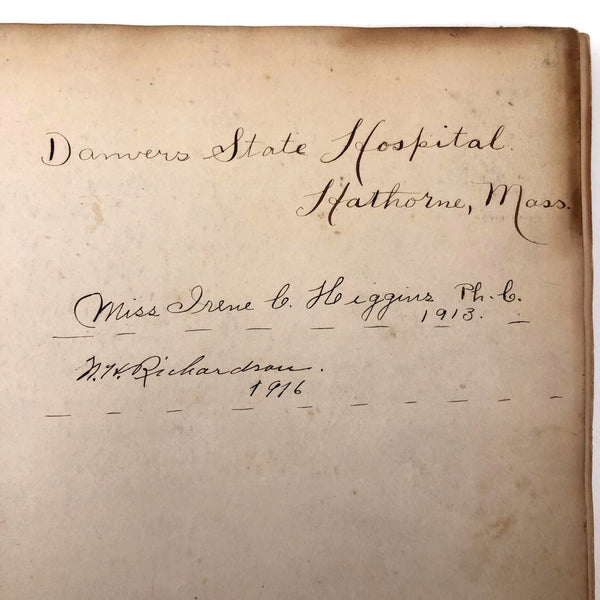 Danvers State Hospital.
Hathorne, Mass.
Miss Irene C. Higgins Ph. C.
1913.
N. H. Richardson.
1916